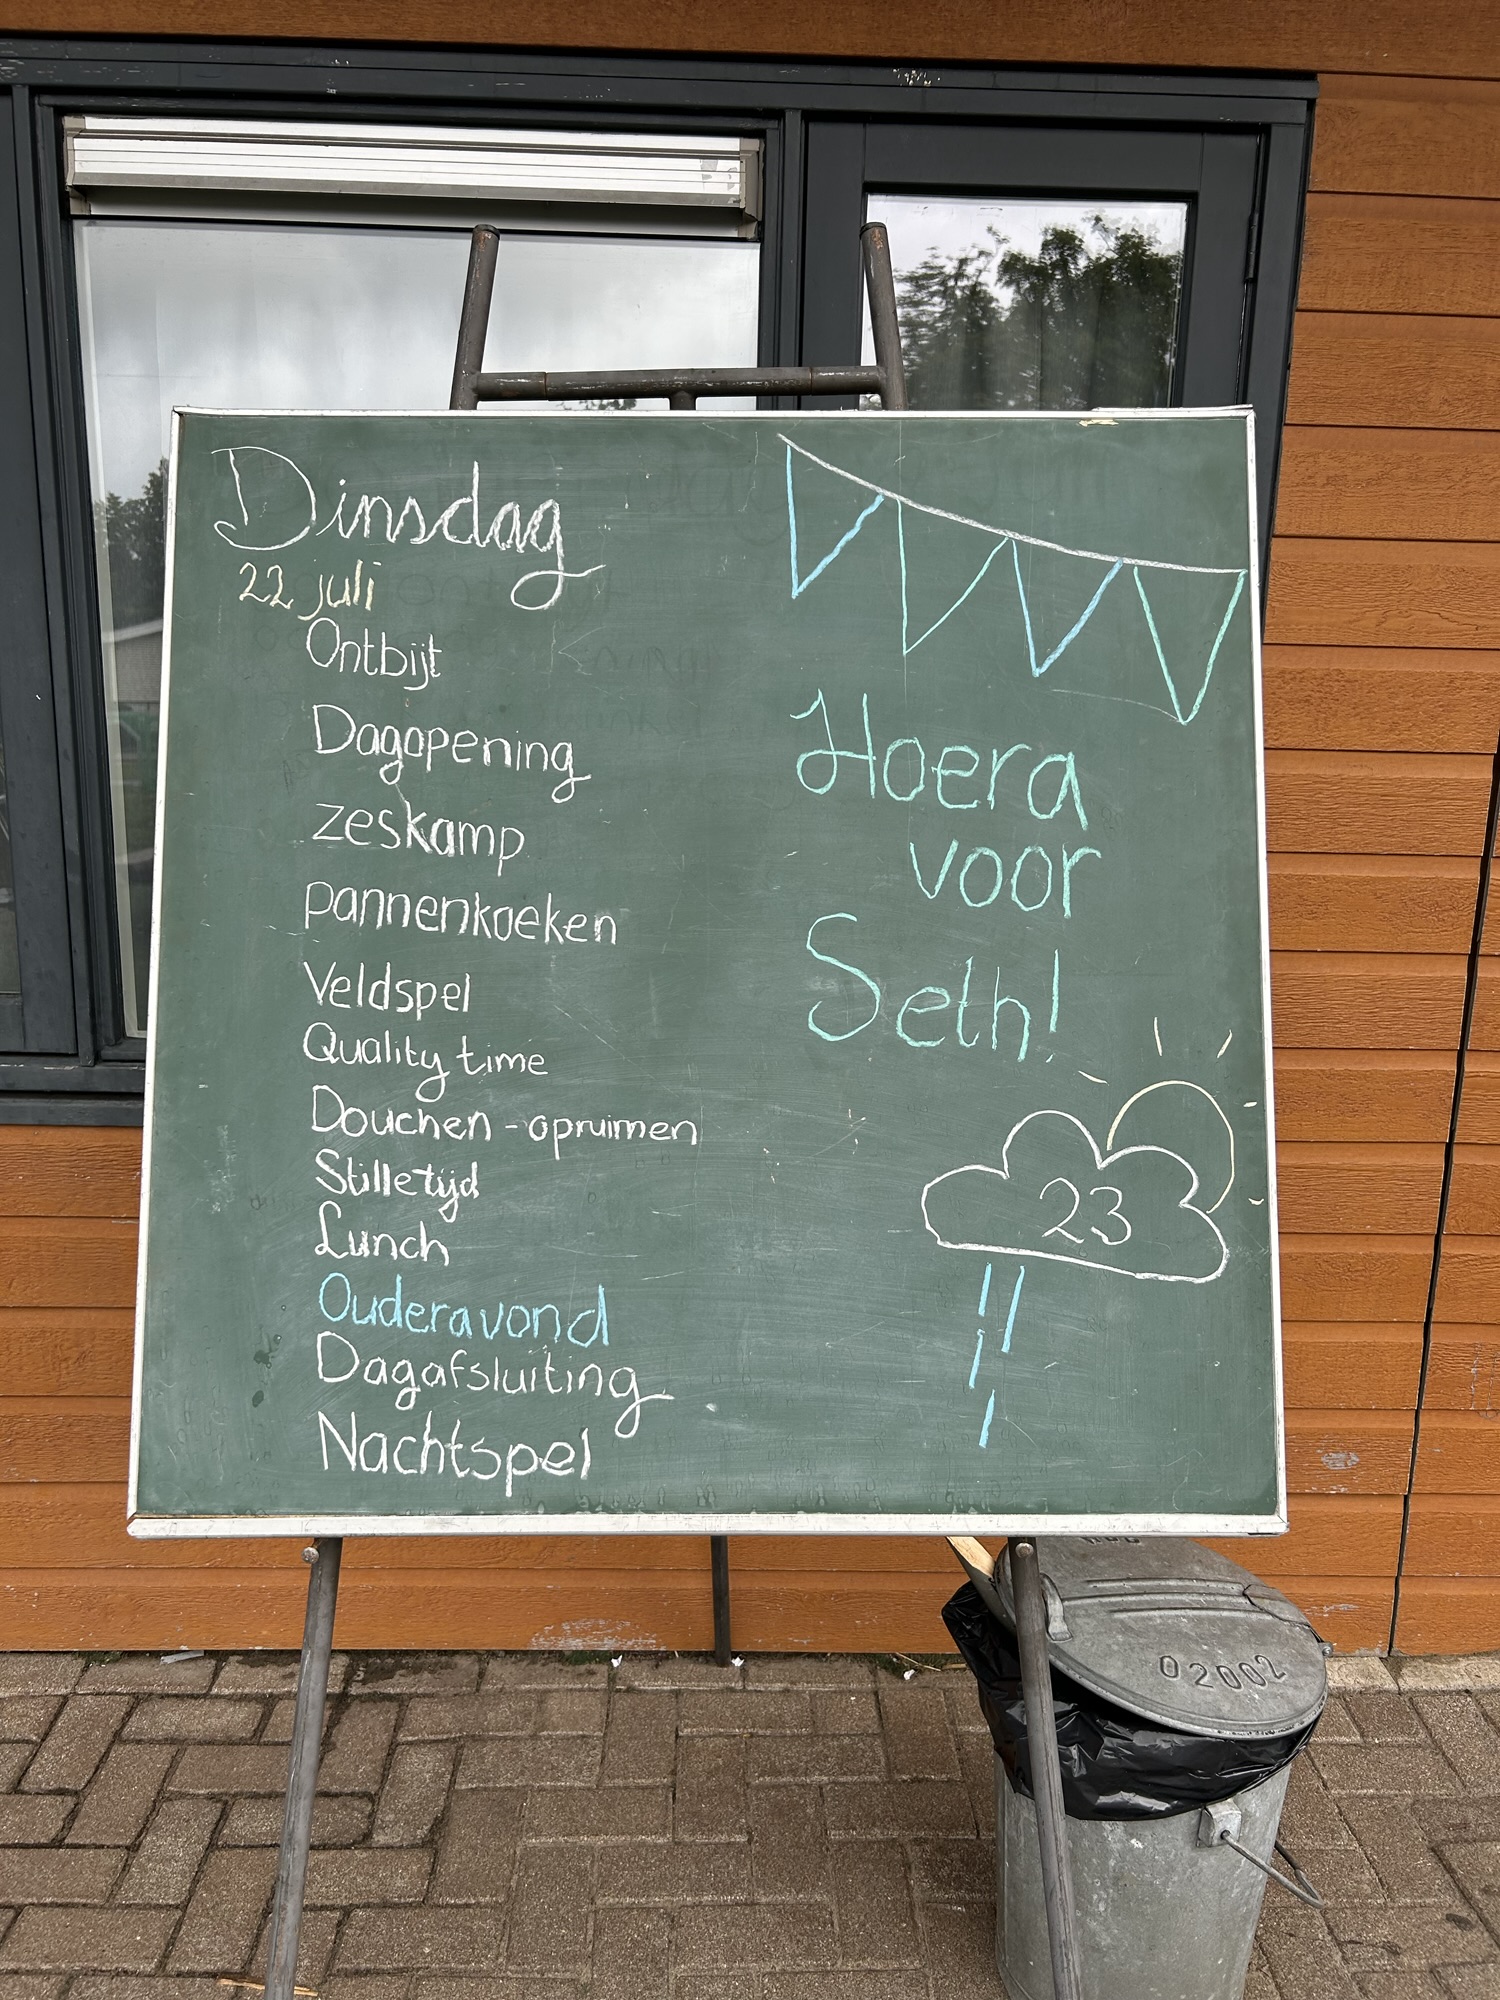 Dinsdag
22 juli
Ontbijt
Dagopening
zeskamp
pannenkoeken
Veldspel
Quality time
Douchen - opruimen
Stilletijd
Lunch
Ouderavond
Dagafsluiting
Nachtspel
Hoera
voor
Seth!
23
02002